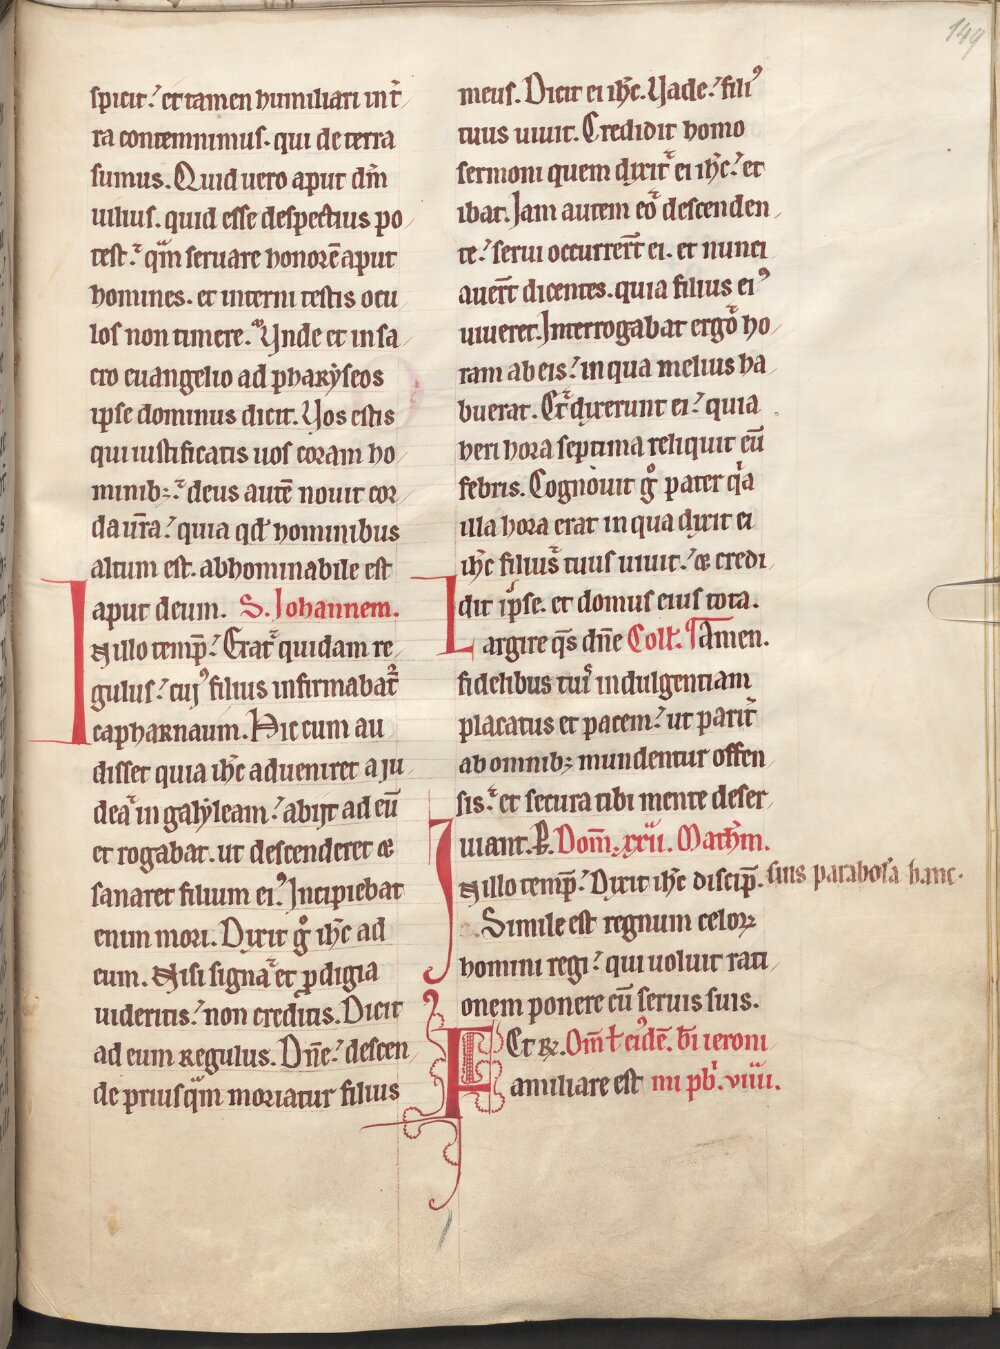 149
spicit. et tamen humiliari int̄
ra contemnimus. qui de terra
sumus. Quid uero aput dm̄
uilius. quid esse despectius po
test. qm̄ seruare honorē aput
homines. et interni testis ocu
los non timere. Vnde et in sa
cro euangelio ad pharẏseos
ipse dominus dicit. Vos estis
qui iustificatis uos coram ho
minib;. deus autē nouit cor
da ur̄a. quia qd̄ hominibus
altum est. abhominabile est
aput deum. S. Johannem.
In illo temp̄. Erat quidam re
gulus. cuj᾿ filius infirmabat᾿
capharnaum. Hic cum au
disset quia ihc̄ adueniret a ju
dea in galẏleam. abijt ad eū
et rogabat. ut descenderet &
sanaret filium ei᾿. Incipiebat
enim mori. Dixit gͦ ihc̄ ad
eum. Nisi signa et p̱digia
uideritis. non creditis. Dicit
ad eum regulus. Dn̄e. descen
de priusqm̄ moriatur filius
meus. Dicit ei ihc̄. Vade. fili᾿
tuus uiuit. Credidit homo
sermoni quem dixit ei ihc̄. et
ibat. Jam autem eo descenden
te. serui occurrer̄t ei. et nunci
auer̄t dicentes. quia filius ei᾿
uiueret. Interrogabat ergo ho
ram ab eis. in qua melius ha
buerat. Et dixerunt ei. quia
heri hora septima reliquit eū
febris. Cognouit gͦ pater qͥa
illa hora erat in qua dixit ei
ihc̄ filius tuus uiuit. & credi
dit ipse. et domus eius tota.
Largire qs̄ dn̄e Coll̄. Amen.
fidelibus tuis indulgentiam
placatus et pacem. ut parit᾿
ab omnib; mundentur offen
sis. et secura tibi mente deser
uiant. P. Dom̄. xxii. Math̄m.
In illo temp̄. Dixit ihc̄ discip̄. suis parabolā hanc.
Simile est regnum celoꝝ
homini regi. qui uoluit rati
onem ponere cū seruis suis.
Et R̄. Oml̄ eiꝰdē. bī ieroni
Familiare est mi pb̄ri. viiii.